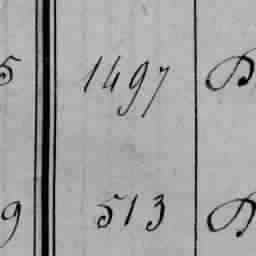 5 1497 D
9 513 D